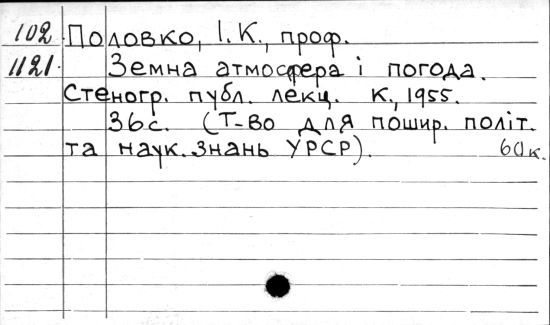 102 Половко, І.К., проф.
1121. Земна атмосфера і погода.
Стеногр. публ. лекц. К., 1955.
36с. (Т-во для пошир. політ.
та наук. знань УРСР). 60к.